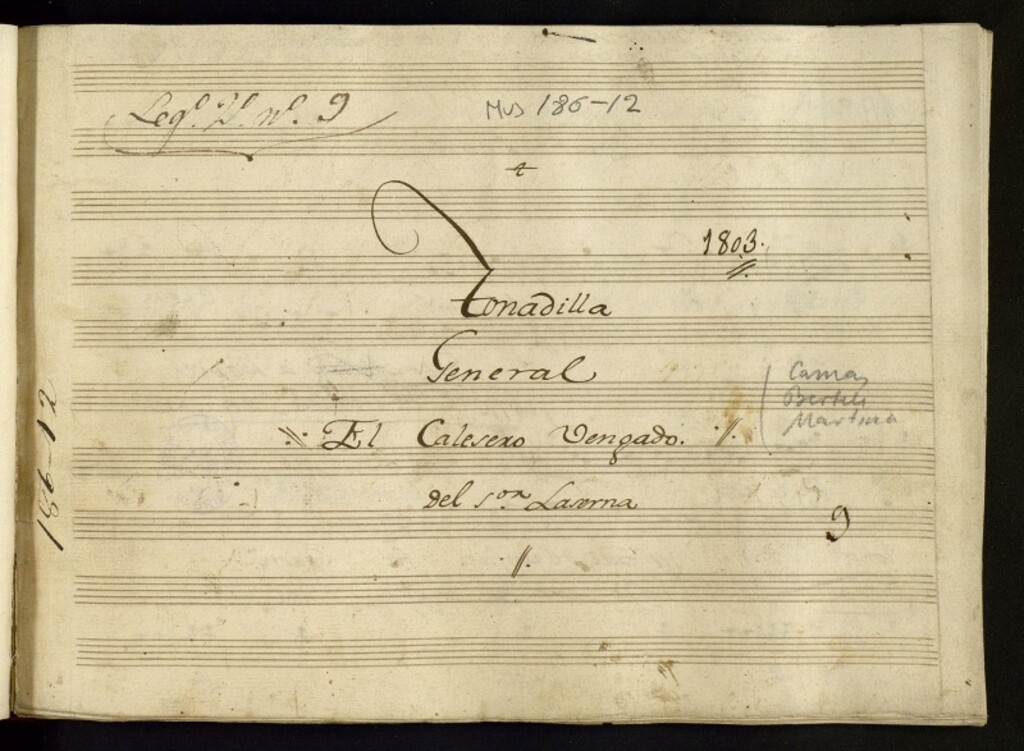 Leg.º 2.º n.º 9
Mus 186-12
1803.
Tonadilla
General
El Calesero Vengado.
del S.or Laserna
Camas
Berteli
Martina
9
186-12